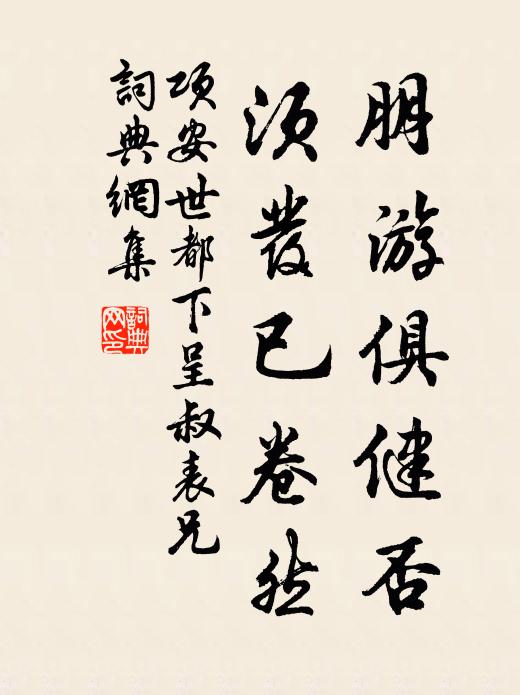 朋游俱健否
须发已卷然
项安世都下呈叔表兄
词典網集
詞典網印